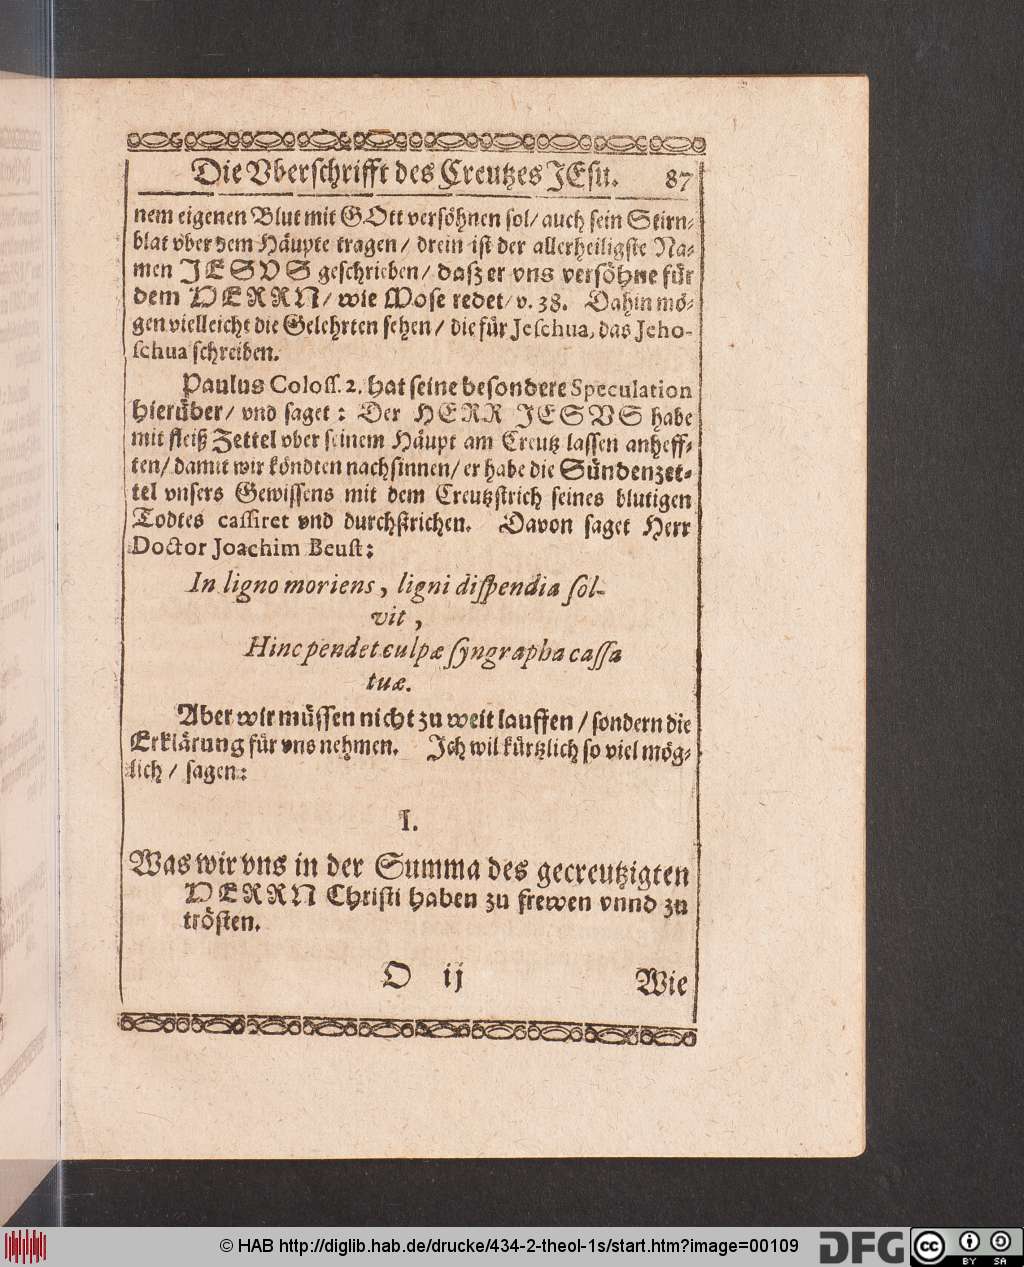 Die Vberschrifft des Creutzes JEsu. 87
nem eigenen Blut mit GOtt versöhnen sol/ auch sein Stirn-
blat vber dem Häupte tragen/ drein ist der allerheiligste Na-
men JESVS geschrieben/ daß er vns versöhne für
dem HERRN/ wie Mose redet/ v. 38. Dahin mö-
gen vielleicht die Gelehrten sehen/ die für Jeschua, das Jeho-
schua schreiben.
Paulus Coloss. 2. hat seine besondere Speculation
hierüber/ vnd saget: Der HERR JESVS habe
mit fleiß Zettel vber seinem Häupt am Creutz lassen anheff-
ten/ damit wir köndten nachsinnen/ er habe die Sündenzet-
tel vnsers Gewissens mit dem Creutzstrich seines blutigen
Todtes cassiret vnd durchstrichen. Davon saget Herr
Doctor Joachim Beust:
In ligno moriens, ligni dispendia sol-
vit,
Hinc pendet culpæ syngrapha cassa
tuæ.
Aber wir müssen nicht zu weit lauffen/ sondern die
Erklärung für vns nehmen. Jch wil kürtzlich so viel mög-
lich/ sagen:
I.
Was wir vns in der Summa des gecreutzigten
HERRN Christi haben zu frewen vnnd zu
trösten.
O ij Wie
© HAB http://diglib.hab.de/drucke/434-2-theol-1s/start.htm?image=00109
DFG
cc BY SA